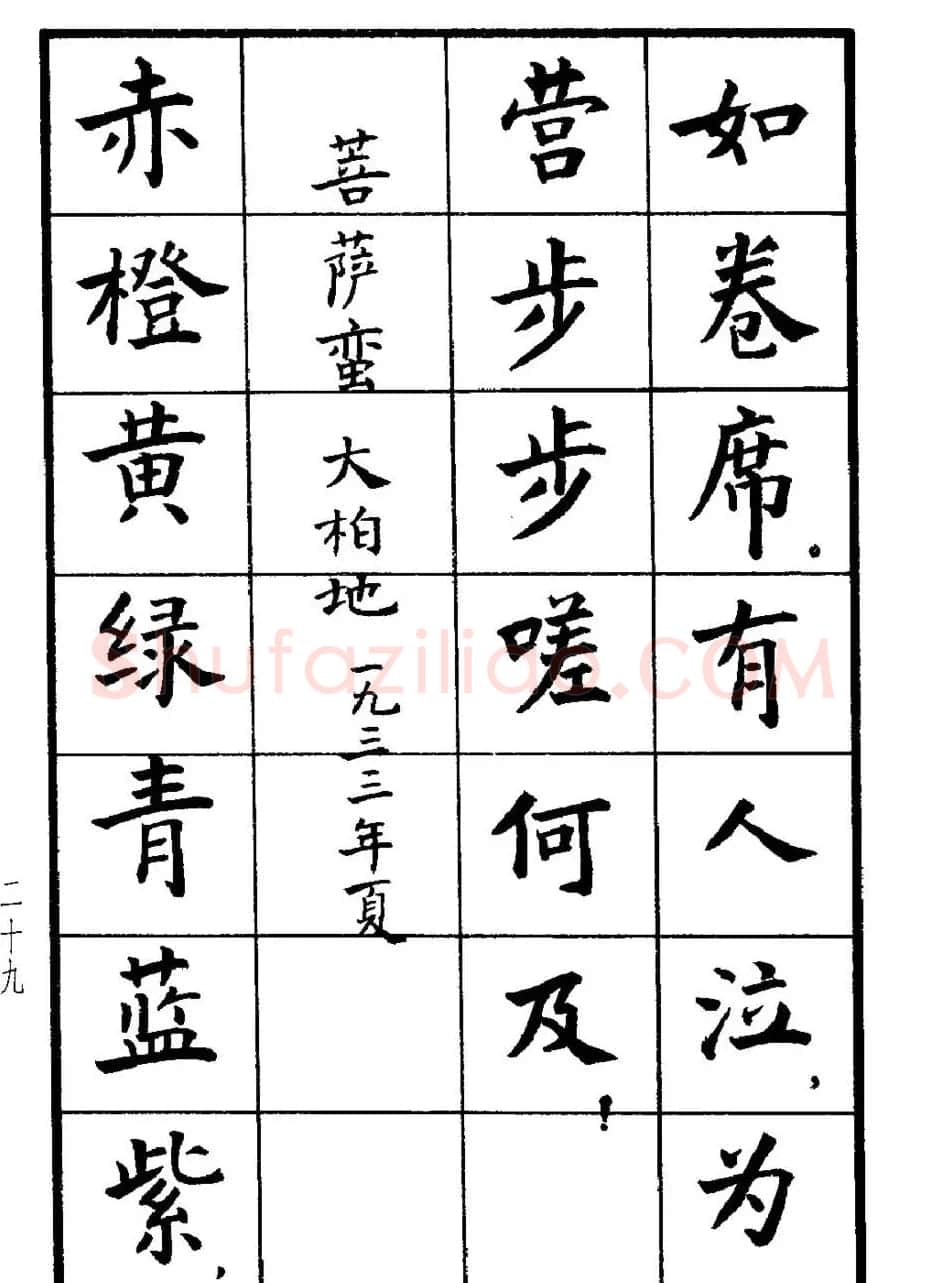 如卷席。有人泣，为
营步步嗟何及！
菩萨蛮 大柏地 一九三三年夏
赤橙黄绿青蓝紫，
二十九
Shufaziliao.COM